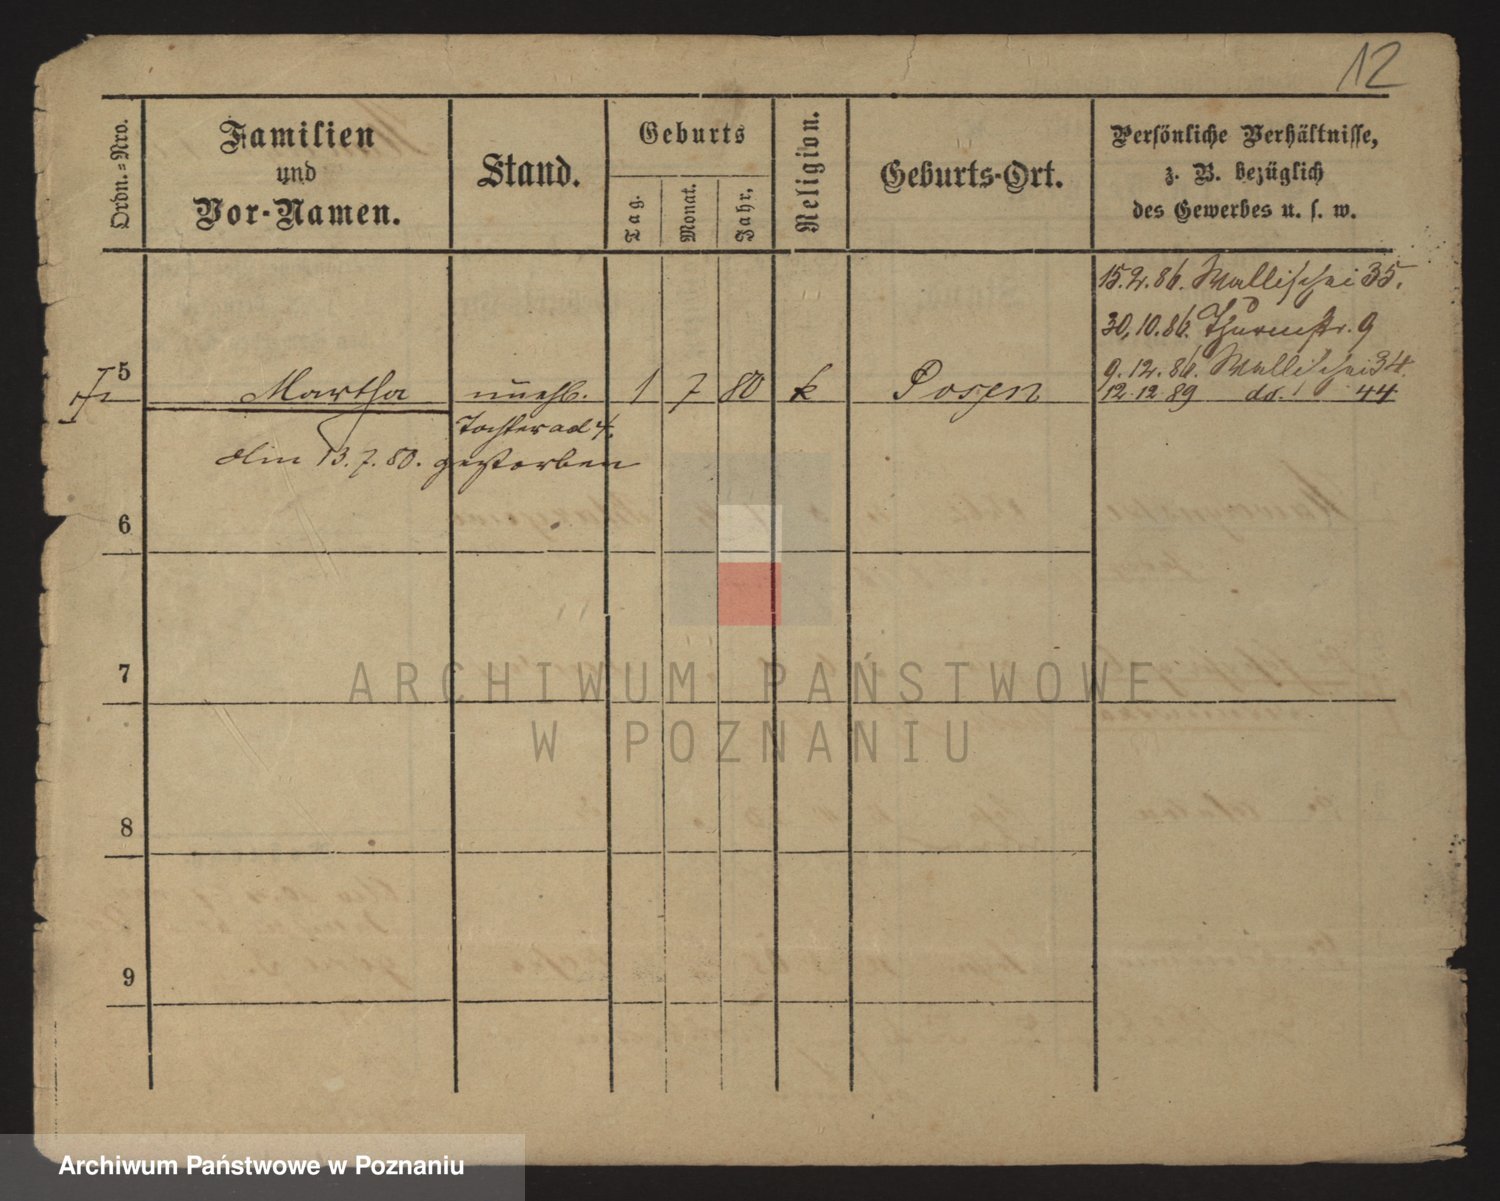 12
Ordn.-Nro.
Familien
und
Vor-Namen.
Stand.
Geburts
Tag.
Monat.
Jahr.
Religion.
Geburts-Ort.
Persönliche Verhältnisse,
z. B. bezüglich
des Gewerbes u. s. w.
15.2.86. Wallischei 35.
30.10.86. Thurmstr. 9
9.12.86. Wallischei 34.
12.12.89 do. 44
5 Martha unehl. 1 7 80 k Posen
Tochter ad 4.
den 13.7.80. gestorben
6
7
8
9
ARCHIWUM PAŃSTWOWE
W POZNANIU
Archiwum Państwowe w Poznaniu